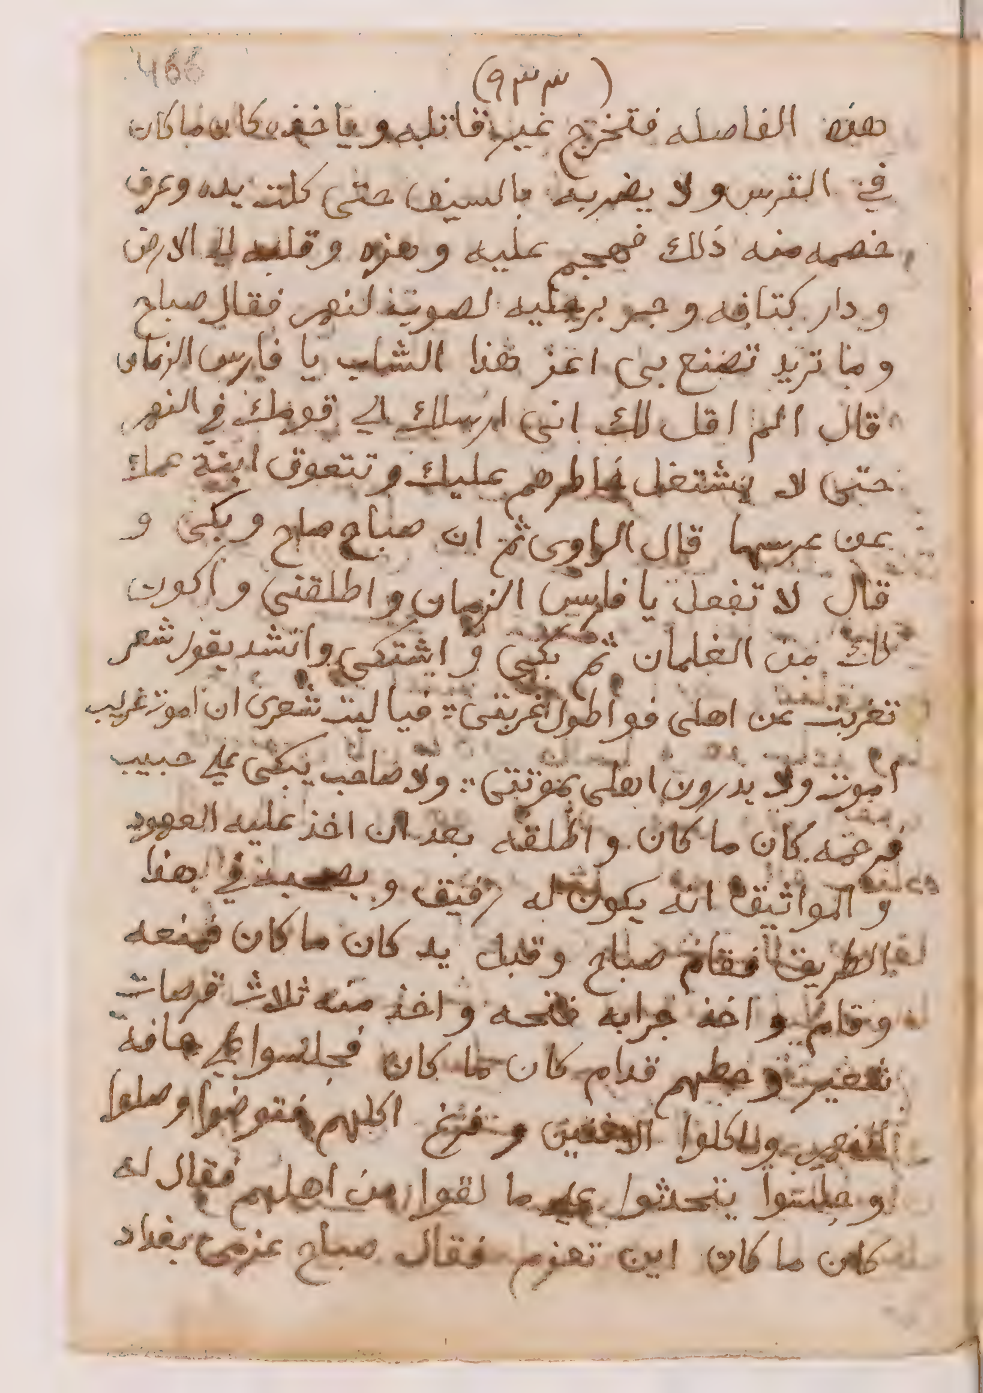 466
(٩٣٣)
هذه الفاصله فتخرج غير قاتله و ياخذ كان ما كان
في الترس ولا يضربه بالسيف حتى كلت يده وعرف
خصمه منه ذلك فهجم عليه وهزه وقلبه الى الارض
و دار كتافه و جر برجليه لصوب النهر فقال صباح
وما تريد تصنع بي اعز هذا الشاب يا فارس الزمان
قال الم اقل لك انى ارسلك الي قومك في النهر
حتى لا يشتغل خاطرهم عليك و تتعوق ابنة عمك
عن عرسها قال الراوى ثم ان صباح صاح و بكى و
قال لا تفعل يا فارس الزمان و اطلقنى و اكون
لك من الغلمان ثم بكى و اشتكى وانشد يقول شعر
تغربت عن اهلى فوا طول غربتى فيا ليت شعرى ان اموت غريب
اموت ولا يدرون اهلى بموتتى ولا صاحب يبكى على حبيب
فرحمه كان ما كان و اطلقه بعد ان اخذ عليه العهود
و المواثيق انه يكون له رفيق و يصحبه في هذا
الطريق فقام صباح وقبل يد كان ما كان فمنعه
وقام و اخذ جرابه فتحه و اخذ منه ثلاث قرصات
شعير و حطهم قدام كان ما كان فجلسوا على حافة
النهر ولما كلوا الاثنين و فرغ اكلهم فتوضوا وصلوا
و جلسوا يتحدثوا على ما لقوا من اهلهم فقال له
كان ما كان اين تعزم فقال صباح عزمى بغداد